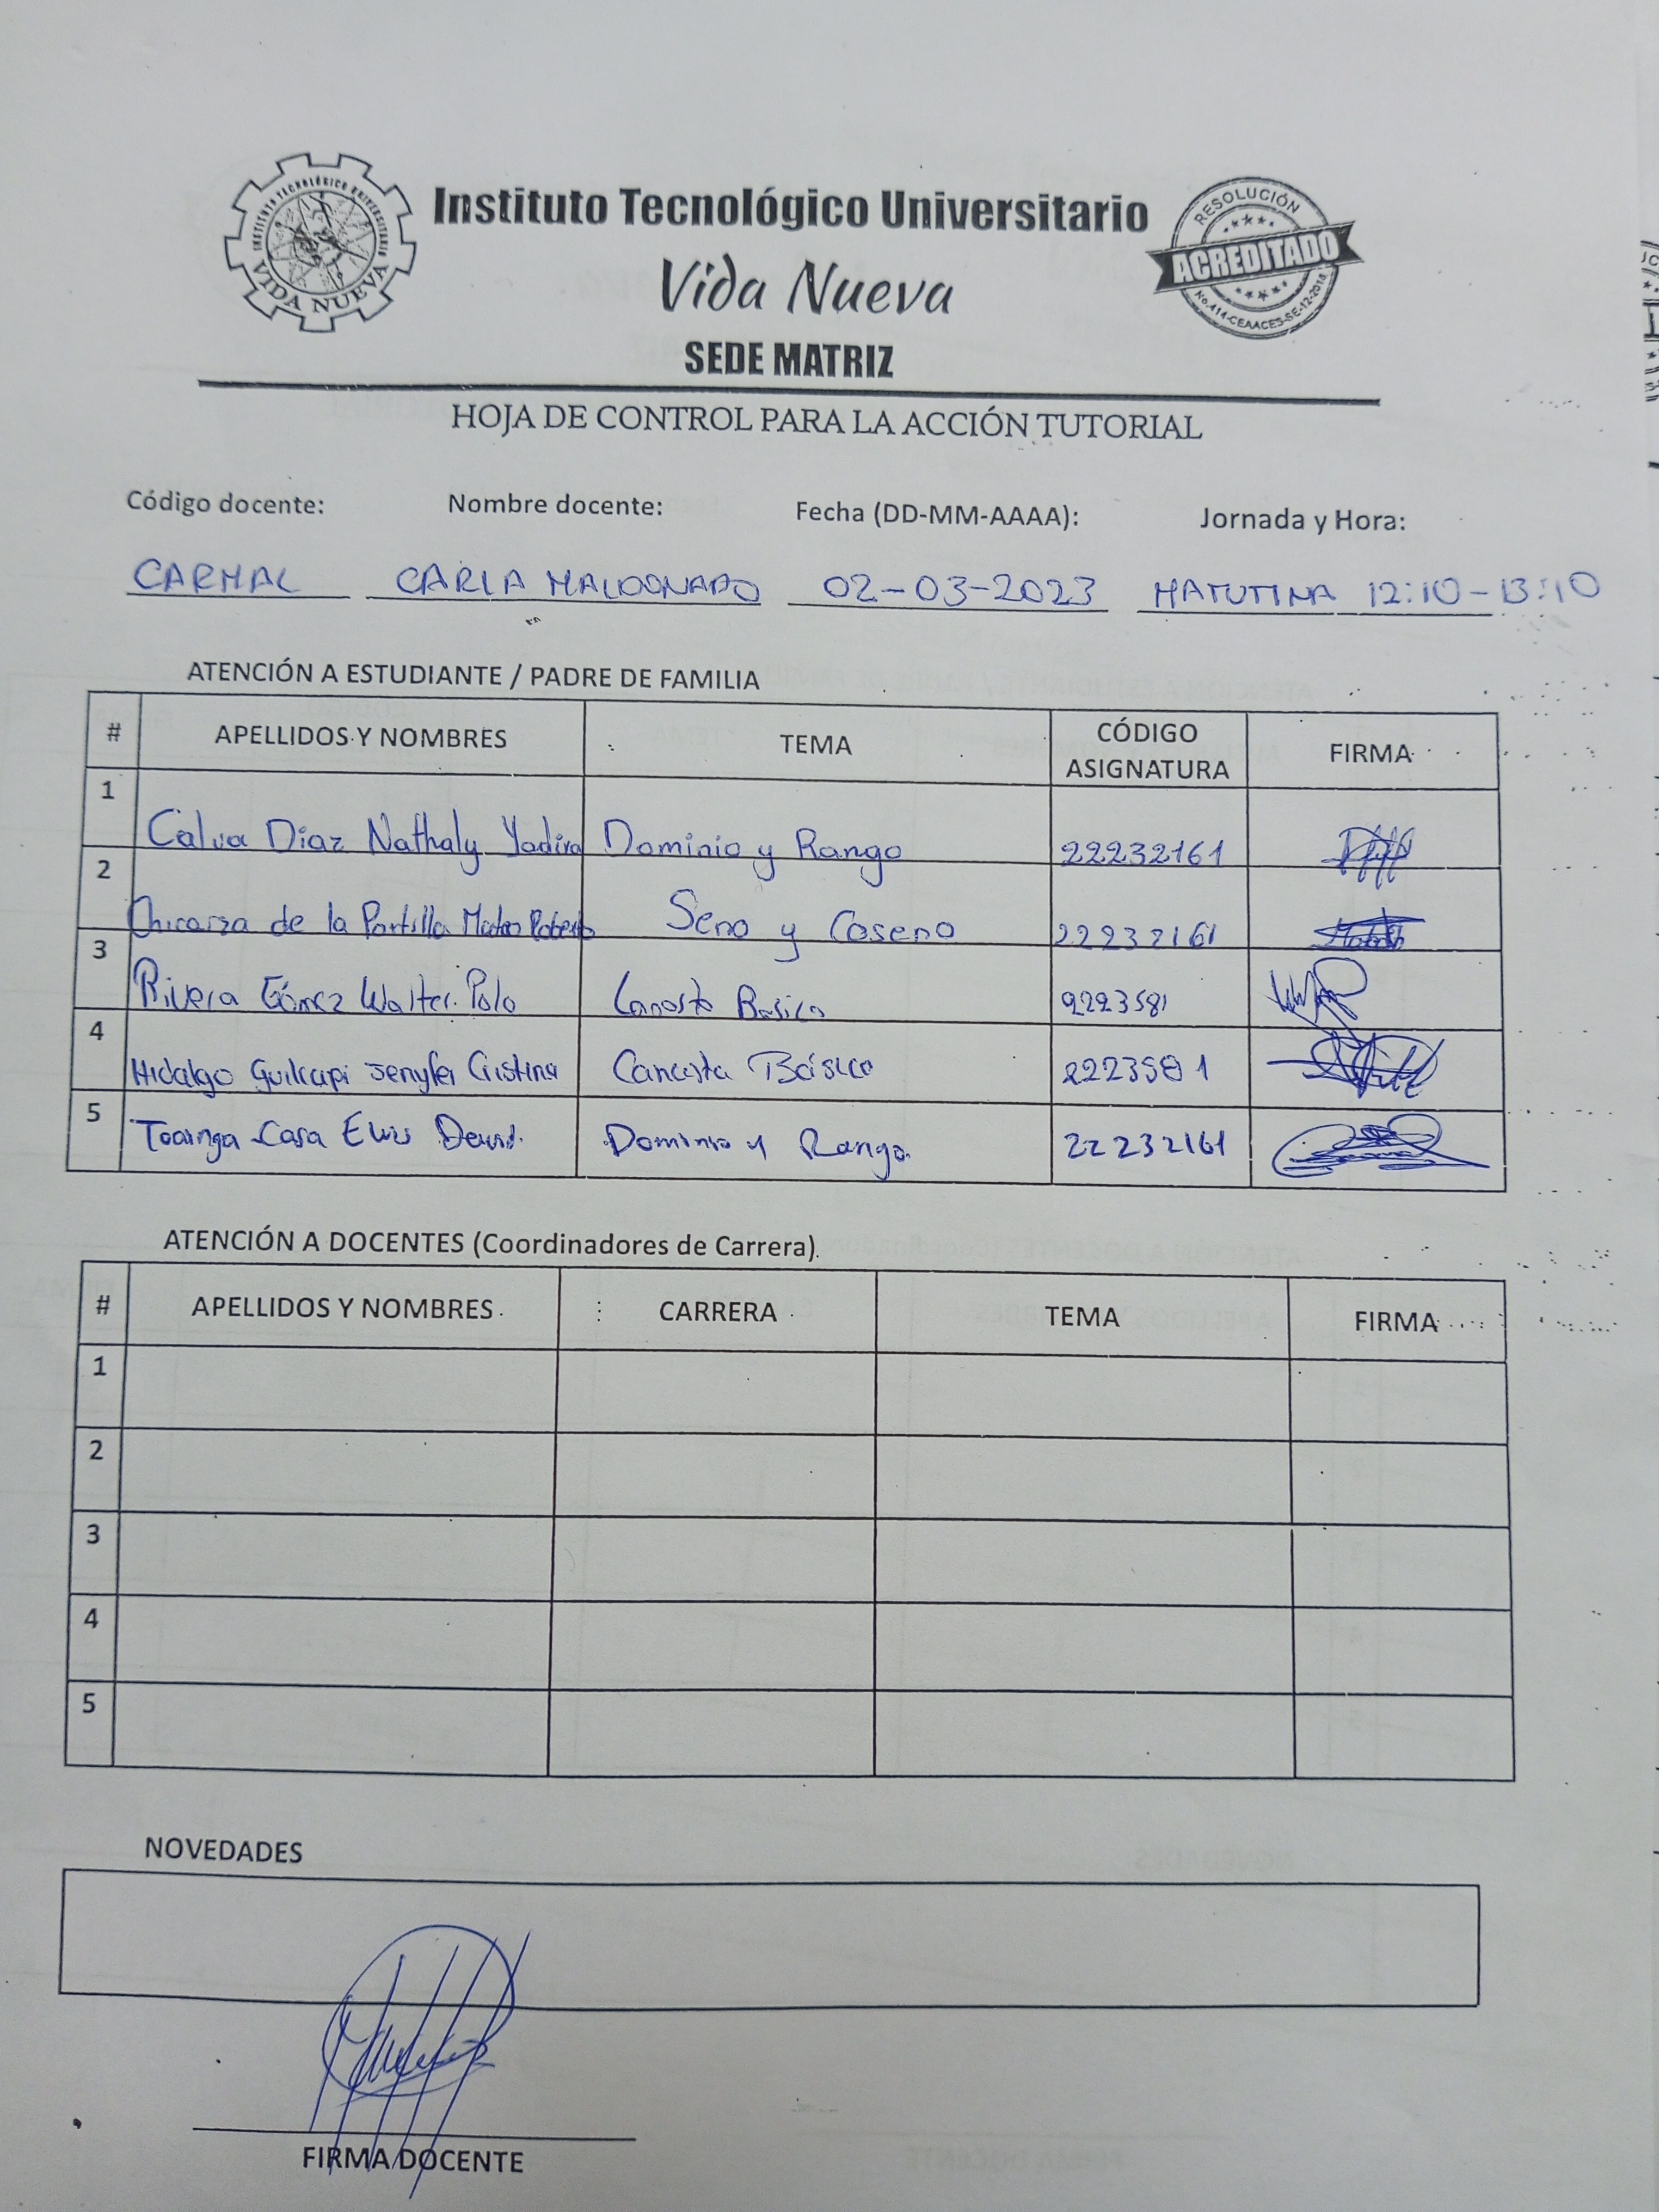 INSTITUTO TECNOLÓGICO UNIVERSITARIO
VIDA NUEVA
Instituto Tecnológico Universitario
Vida Nueva
SEDE MATRIZ
RESOLUCIÓN
ACREDITADO
No.414-CEAACES-SE-12-2018
HOJA DE CONTROL PARA LA ACCIÓN TUTORIAL
Código docente: Nombre docente: Fecha (DD-MM-AAAA): Jornada y Hora:
CARMAL CARLA MALDONADO 02-03-2023 MATUTINA 12:10-13:10
ATENCIÓN A ESTUDIANTE / PADRE DE FAMILIA
# APELLIDOS Y NOMBRES TEMA CÓDIGO ASIGNATURA FIRMA
1 Calva Diaz Nathaly Yadira Dominio y Rango 22232161
2 de la Portilla Mateo Roberto Seno y Coseno 22232161
3 Rivera Gómez Walter Polo 2223581
4 Hidalgo Guilcapi Jenyfer Cristina Canasta Básica 2223581
5 Toainga Casa David. Dominio y Rango. 22232161
ATENCIÓN A DOCENTES (Coordinadores de Carrera)
# APELLIDOS Y NOMBRES CARRERA TEMA FIRMA
1
2
3
4
5
NOVEDADES
FIRMA DOCENTE